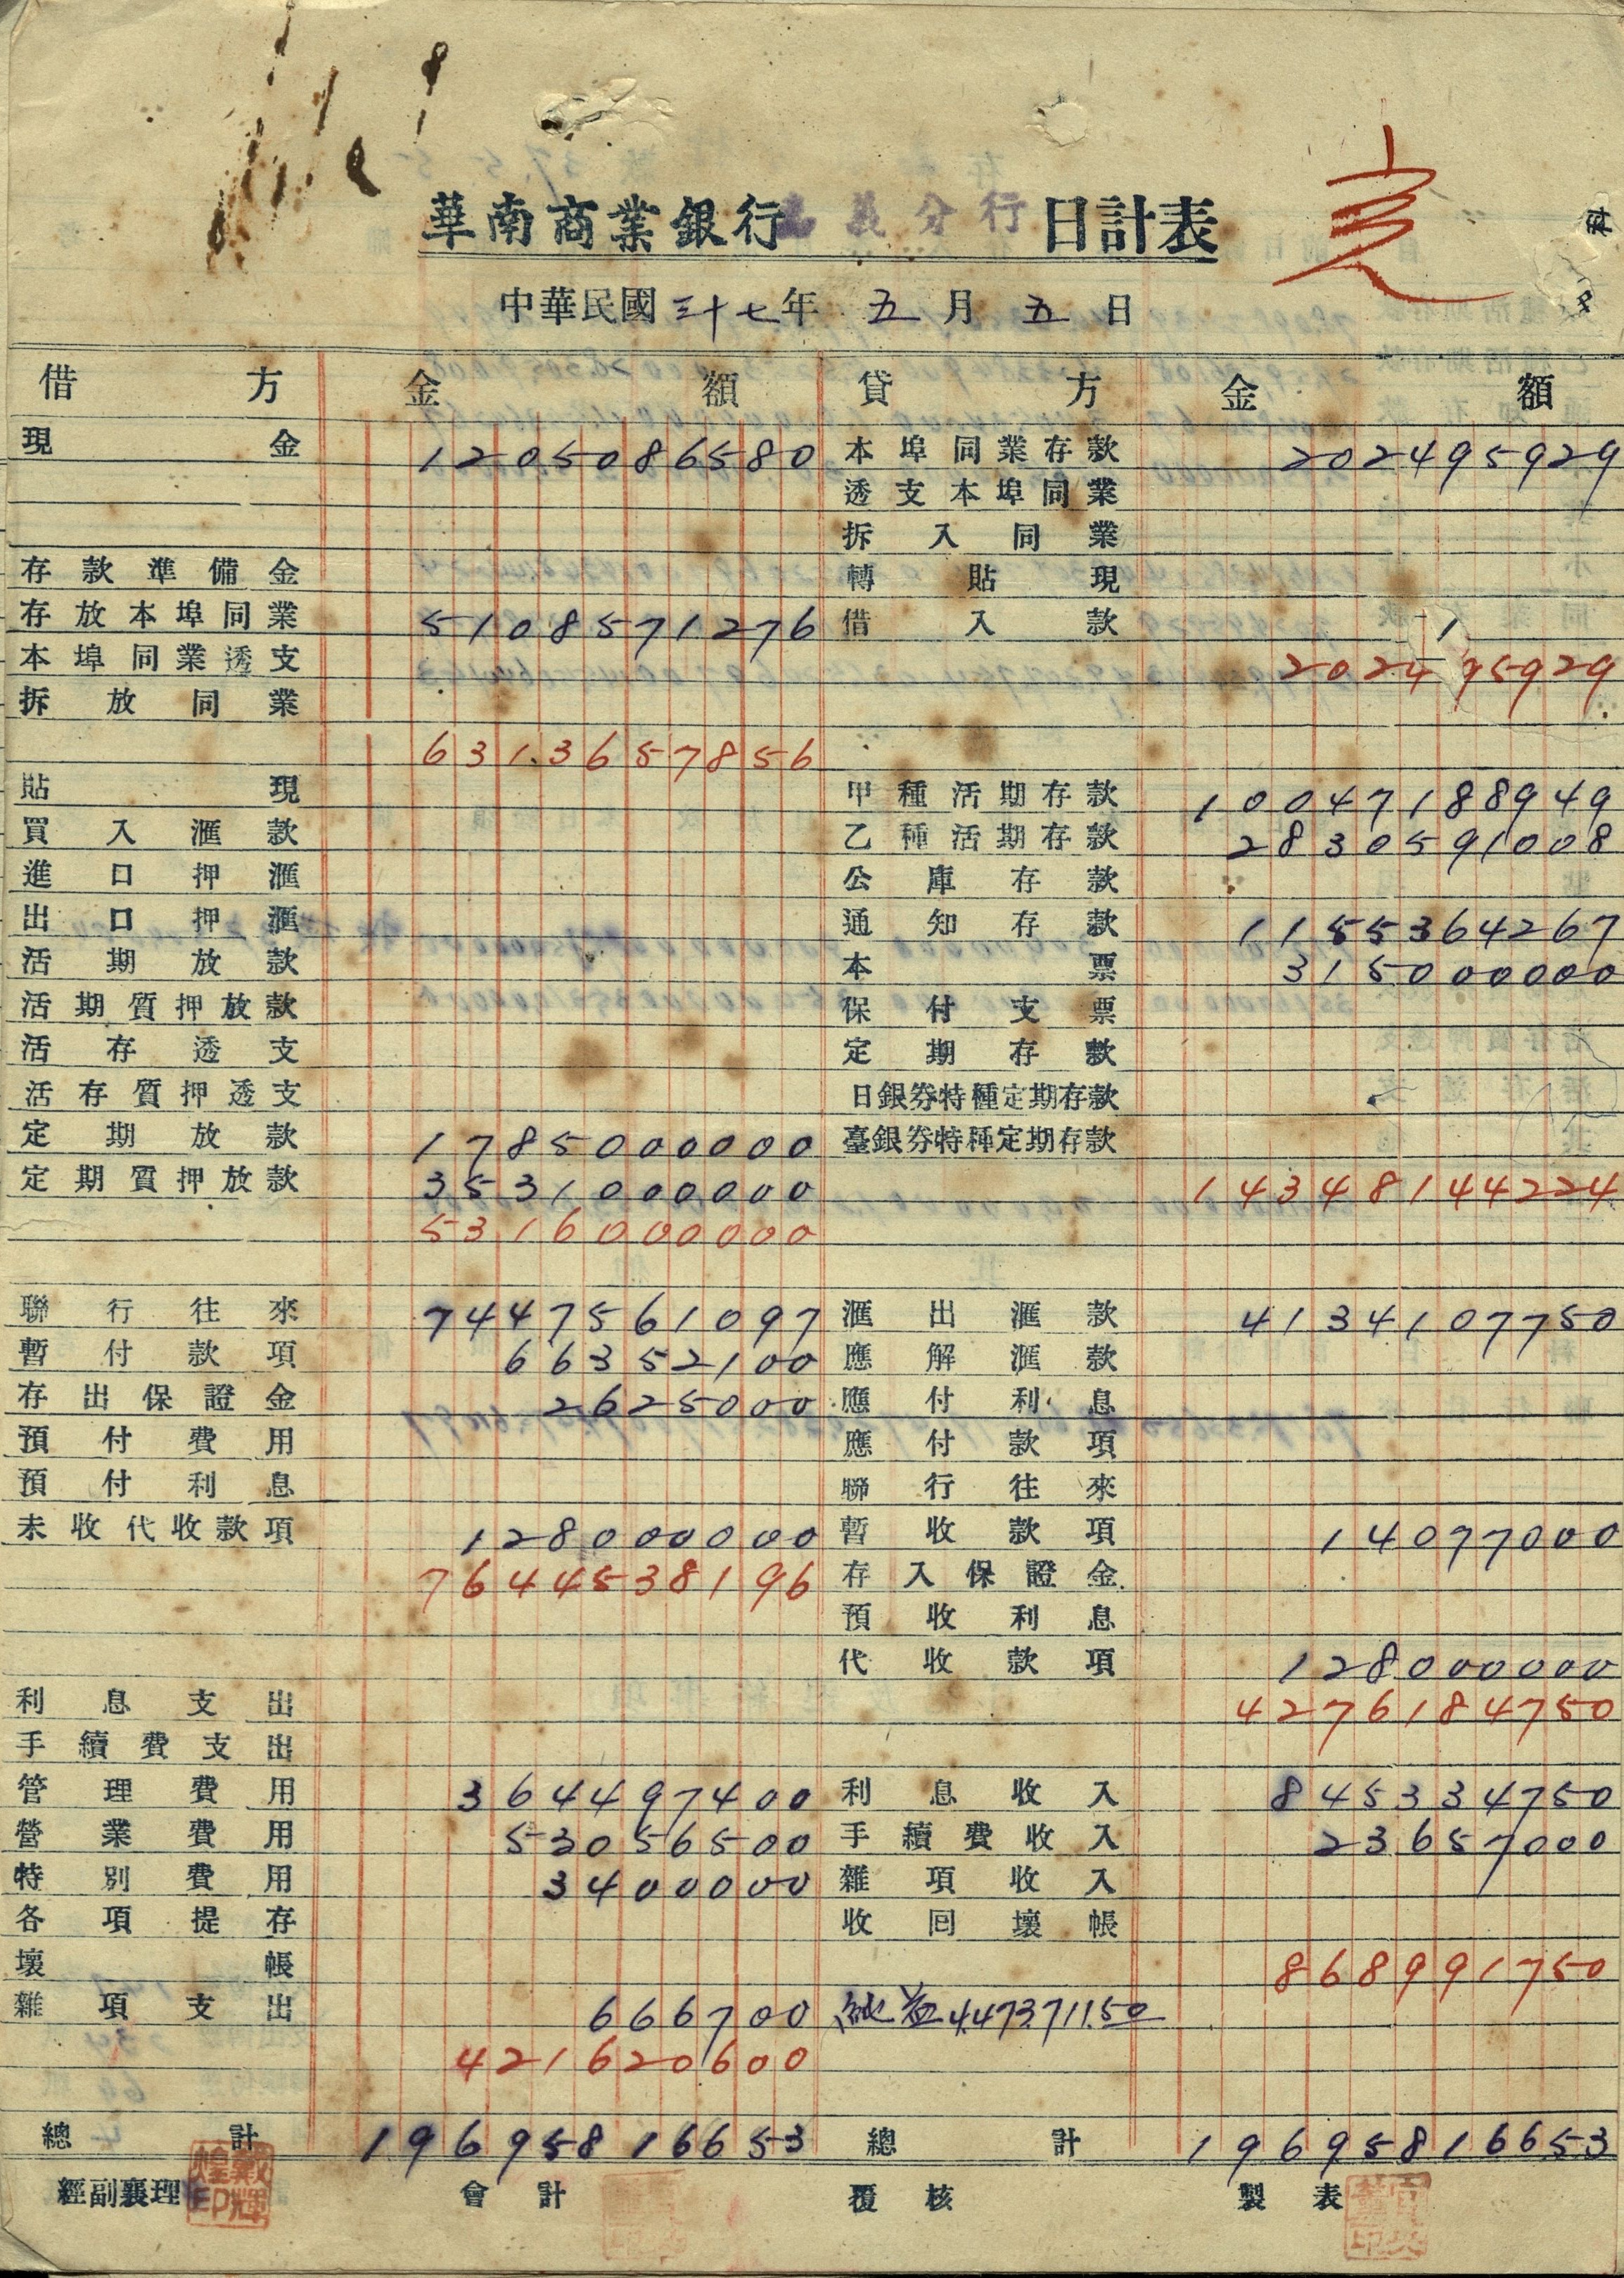 華南商業銀行 嘉義分行 日計表
完
科
中華民國三十七年 五月五日
借方 金額 貸方 金額
現金 1205086580 本埠同業存款 202495929
透支本埠同業
拆入同業
存款準備金 轉貼現
存放本埠同業 5108571276 借入款
本埠同業透支 202495929
拆放同業
6313657856
貼現 甲種活期存款 10047188949
買入滙款 乙種活期存款 2830591008
進口押滙 公庫存款
出口押滙 通知存款 1155364267
活期放款 本票 315000000
活期質押放款 保付支票
活存透支 定期存款
活存質押透支 日銀券特種定期存款
定期放款 1785000000 臺銀券特種定期存款
定期質押放款 3531000000 14348144224
5316000000
聯行往來 7447561097 滙出滙款 4134107750
暫付款項 66352100 應解滙款
存出保證金 2625000 應付利息
預付費用 應付款項
預付利息 聯行往來
未收代收款項 128000000 暫收款項 14077000
7644538196 存入保證金
預收利息
代收款項 128000000
利息支出 4276184750
手續費支出
管理費用 364497400 利息收入 845334750
營業費用 53056500 手續費收入 23657000
特別費用 3400000 雜項收入
各項提存 收回壞帳
壞帳 868991750
雜項支出 666700 純益 4,473,711.50
421620600
總計 19695816653 總計 19695816653
經副襄理 會計 覆核 製表
戴輝煌印